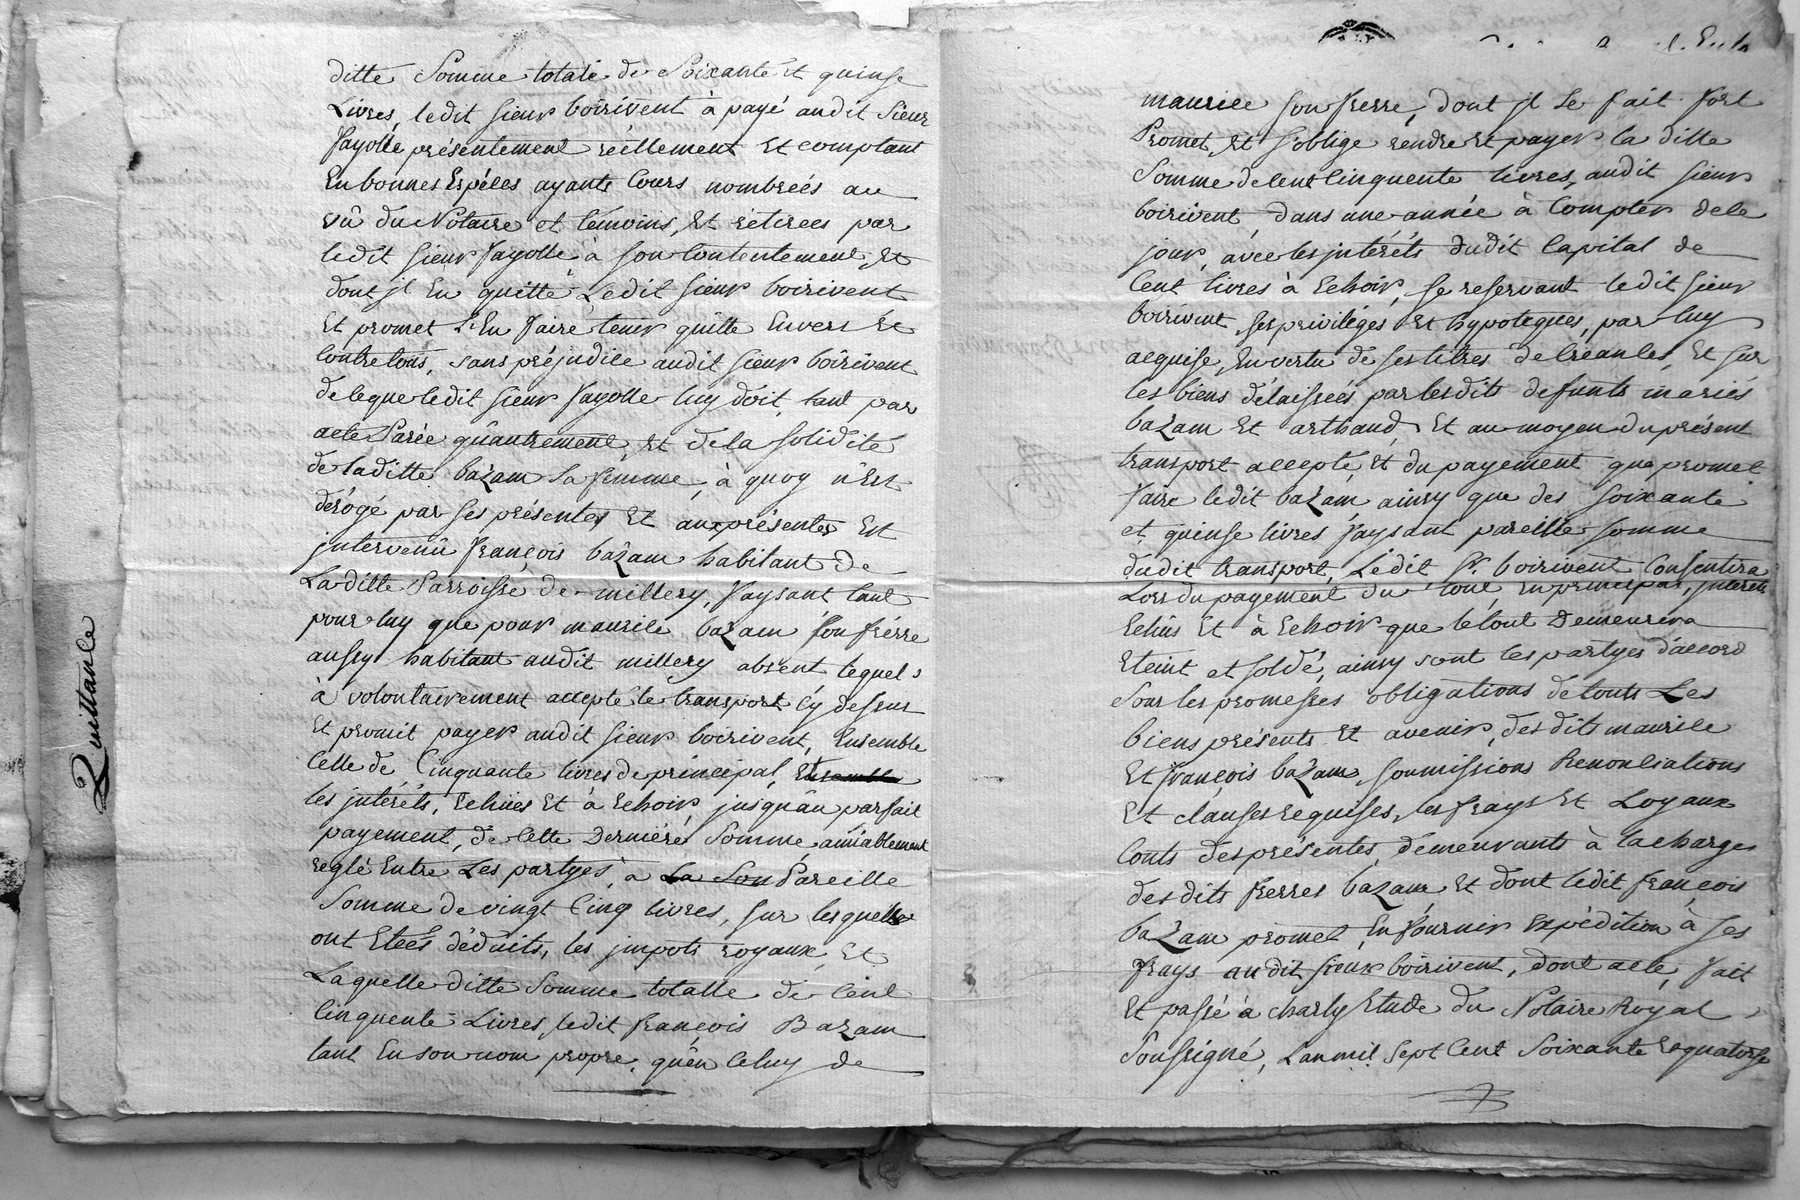 Quittance
ditte Somme totale de Soixante et quinse
Livres, ledit sieur boirivent à payé audit Sieur
fayolle présentement réellement Et comptant
En bonnes Espéces ayants Cours nombreés au
vû du Notaire et témoins, Et rétirees par
ledit sieur fayolle à son Contentement, Et
dont jl En quitte Ledit sieur boirivent
Et promet L'En faire tenir quitte Envers Et
Contre tous, sans préjudice audit sieur boirivent
de ce que ledit sieur fayolle luy doit, tant par
acte Parée qu'autrement, Et de la solidité
de laditte bazam sa femme, à quoy n'Est
dérogé par ses présentes Et aux présentes Est
jntervenû françois bazam habitant de
La ditte Parroisse de millery, faysant tant
pour luy que pour maurice bazam son frérre
aussy habitant audit millery absent lequel
à volontairement accepté le transport cÿ dessus
Et promit payer audit sieur boirivent, Ensemble
Celle de Cinquante livres de principal, Ensemble
les jntéréts, Echûes Et à Echoir, jusqu'au parfait
payement, de Cette Derniére Somme, amiablement
reglé Entre Les partyes, à La Son Pareille
Somme de vingt Cinq livres, sur lesquelle
ont Eteés déduits, les jmpots royaux, Et
Laquelle ditte Somme totalle de Cent
Cinquente Livres, ledit françois Bazam
tant En son nom propre, qu'en Celuy de
maurice son frerre, dont jl se fait fort
Promet, Et s'oblige rendre Et payer la ditte
Somme de Cent Cinquente livres, audit sieur
boirivent, dans une année à Compter de Ce
jour, avec les jntéréts dudit Capital de
Cent livres à Echoir, se reservant ledit sieur
boirivent, ses priviléges Et hypoteques, par luy
acquise, En vertu de ses titres de Créances, Et sur
les biens délaisseés par lesdits defunts mariés
bazam Et arthaud, Et au moyen du présent
transport accepté, Et du payement que promet
faire ledit bazam, ainsy que des soixante
et quinse livres faysant pareille somme
dudit transport, Ledit Sr. boirivent Consentira
Lors du payement du tout, En principal, jnteréts
Echûs Et à Echoir que le tout Demeurera
Eteint et soldé, ainsy sont les partyes d'accord
sous les promesses obligations de touts Les
biens présents Et avenir, des dits maurice
Et françois bazam, soumissions Renonciations
Et clauses requises, les frays Et Loyaux
Couts des présentes, demeurants à la charges
des dits frerres bazam, Et dont ledit françois
bazam promet, En fournir Expédition à ses
frays audit sieur boirivent, dont acte, fait
Et passé à charly Etude du Notaire Royal
Soussigné, L'an mil sept Cent Soixante Et quatorse